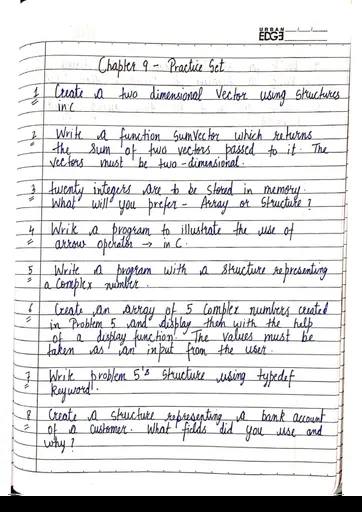 URBAN
EDGE
Chapter 9 - Practice Set
1 Create a two dimensional vector using structures
in C
2 Write a function SumVector which returns
the sum of two vectors passed to it. The
vectors must be two-dimensional.
3 twenty integers are to be stored in memory.
What will you prefer - Array or Structure?
4 Write a program to illustrate the use of
arrow operator → in C.
5 Write a program with a structure representing
a Complex number.
6 Create an array of 5 Complex numbers created
in Problem 5 and display them with the help
of a display function. The values must be
taken as an input from the user.
7 Write problem 5's structure using typedef
keyword.
8 Create a structure representing a bank account
of a customer. What fields did you use and
why?